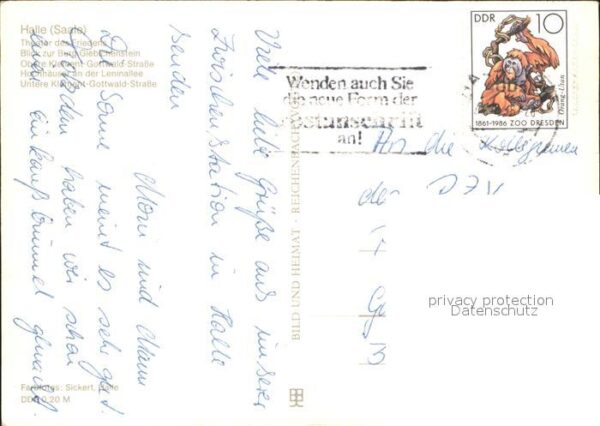 Halle (Saale)
Theater des Friedens
Blick zur Burg Giebichenstein
Obere Klement-Gottwald-Straße
Hochhäuser an der Leninallee
Untere Klement-Gottwald-Straße
Viele liebe Grüße aus unserer
Zwischenstation in Halle
senden
und
Die Sonne meint es sehr gut.
haben wir schon
einen Einkaufsbummel gemacht.
Farbfotos: Sickert, Halle
DDR 0,20 M
BILD UND HEIMAT · REICHENBACH
Wenden auch Sie
die neue Form der
Postanschrift
an!
DDR 10
Orang-Utan
1861-1986 ZOO DRESDEN
An die Kolleginnen
der
privacy protection
Datenschutz